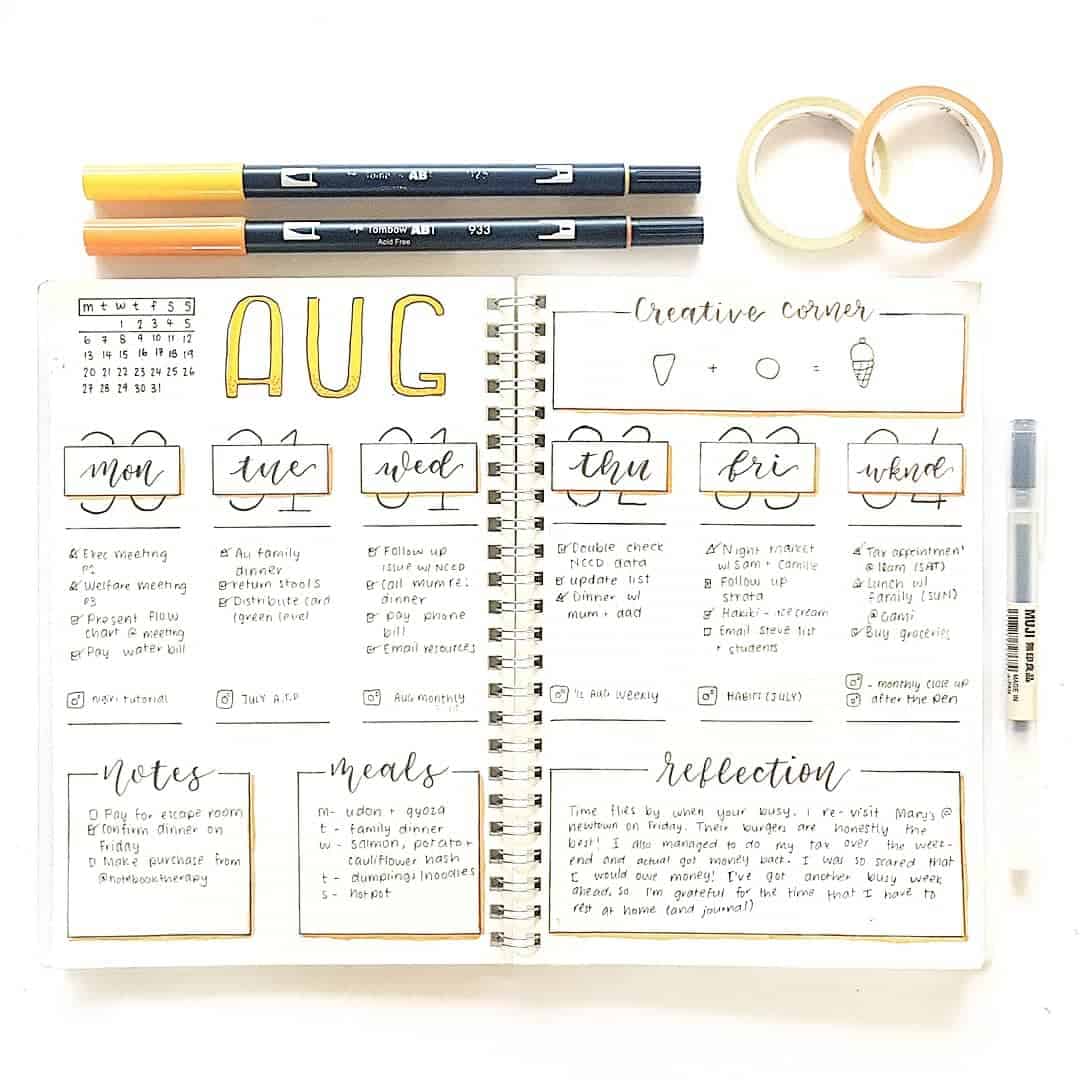 ABT 925
Tombow ABT 933
Acid Free
m t w t f s s
1 2 3 4 5
6 7 8 9 10 11 12
13 14 15 16 17 18 19
20 21 22 23 24 25 26
27 28 29 30 31
AUG
30 mon
Exec meeting
P2
Welfare meeting
P3
Present flow
chart @ meeting
Pay water bill
tutorial
31 tue
Au family
dinner
return stools
Distribute card
(green level)
JULY
01 wed
Follow up
issue w/ NCCD
Call mum re:
dinner
pay phone
bill
Email resources
AUG monthly
notes
Pay for escape room
Confirm dinner on
Friday
Make purchase from
@notebooktherapy
meals
m- udon + gyoza
t - family dinner
w - salmon, potato +
cauliflower hash
t - dumplings/noodles
s - hotpot
Creative corner
+ =
02 thu
Double check
NCCD data
update list
Dinner w/
mum + dad
AUG weekly
03 fri
Night market
w/ Sam + Camille
Follow up
strata
Habiki - ice cream
Email Steve list
+ students
HABIT (JULY)
04 wknd
Tax appointment
@ 10am (SAT)
Lunch w/
family (SUN)
@ Gami
Buy groceries
- monthly close up
after the pen
reflection
Time flies by when your busy. I re-visit Mary's @
newtown on Friday. Their burgers are honestly the
best! I also managed to do my tax over the week-
end and actual got money back. I was so scared that
I would owe money! I've got another busy week
ahead. so I'm grateful for the time that I have to
rest at home (and journal)
MUJI 無印良品
MADE IN